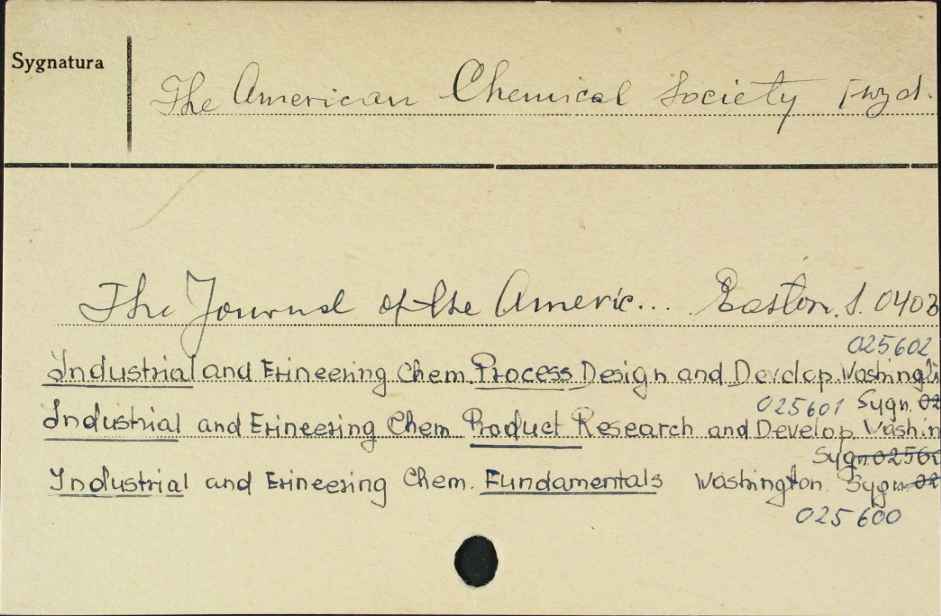 Sygnatura
The American Chemical Society
The Journal of the Americ... Easton. S. 0403
025602
Industrial and Erineering Chem. Process Design and Develop. Washingt
025601 Sygn. 02
Industrial and Erineering Chem. Product Research and Develop. Washin
Sygn. 02560
Industrial and Erineering Chem. Fundamentals Washington. Sygn. 02
025600